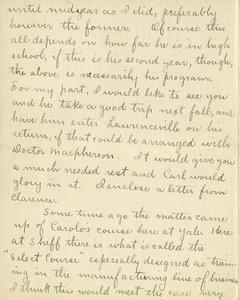 until midyear as I did, preferably
however the former. Of course this
all depends on how far he is in high
school, if this is his second year, though,
the above is necessarily his program.
For my part, I would like to see you
and he take a good trip next fall, and
have him enter Lawrenceville on his
return, if that could be arranged with
Doctor Macpherson. It would give you
a much needed rest and Carl would
glory in it. I enclose a letter from
Clarence.
Some time ago the matter came
up of Carolos course here at Yale. Here
at Sheff there is what is called the
"Select Course" especially designed as train-
ing in the manufacturing line of business
I think this would meet the case very